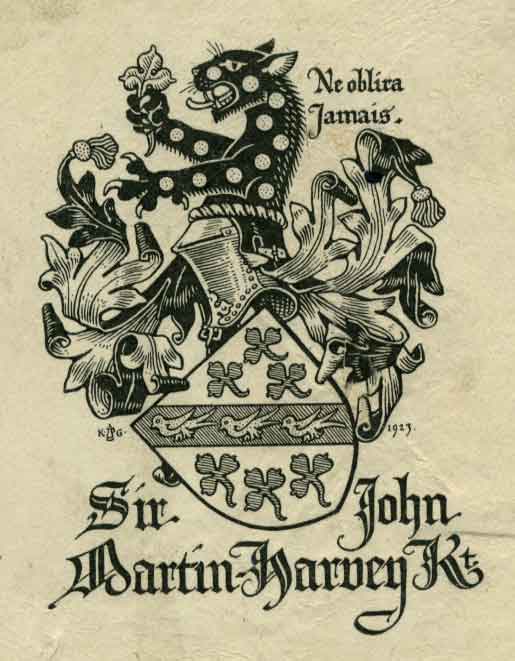 Ne oblira
Jamais.
K.A.G. 1923.
Sir. John
Martin-Harvey Kt.